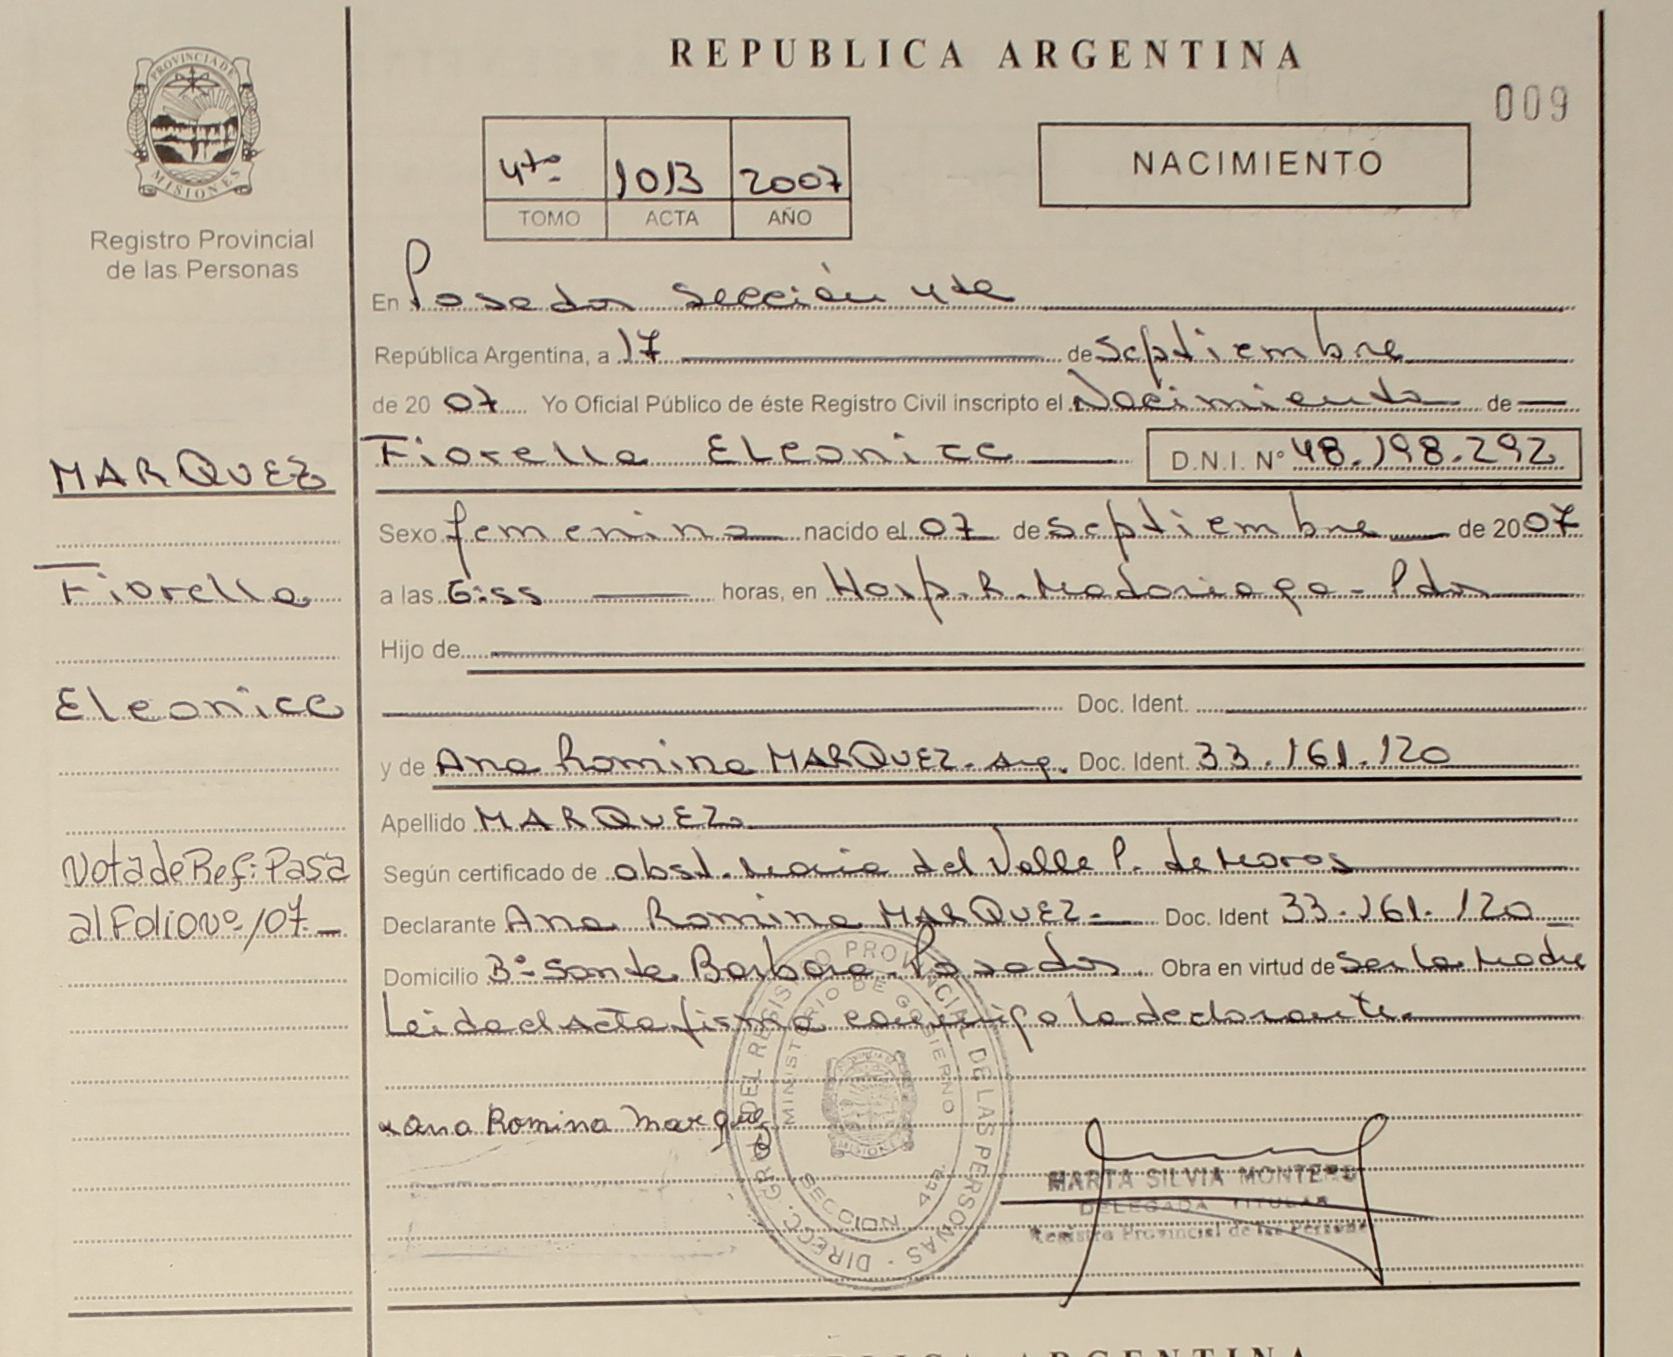 REPUBLICA ARGENTINA
009
PROVINCIA DE
MISIONES
Registro Provincial
de las Personas
4to 1013 2007
TOMO ACTA AÑO
NACIMIENTO
En Posadas Sección 4ta
República Argentina, a 17 de Septiembre
de 2007 Yo Oficial Público de éste Registro Civil inscripto el Nacimiento de
MARQUEZ
Fiorella Eleonice D.N.I. Nº 48.198.292
Sexo femenino nacido el 07 de Septiembre de 2007
Fiorella
a las 6:55 horas, en Hosp. R. Madariaga - Pdas
Hijo de
Eleonice
Doc. Ident.
y de Ana Romina MARQUEZ - Arg. Doc. Ident. 33.161.120
Apellido MARQUEZ
Nota de Ref: Pasa
al Folio Nº /07.
Según certificado de Obst. Maria del Valle P. de Moros
Declarante Ana Romina MARQUEZ - Doc. Ident 33.161.120
Domicilio Bº Santa Barbara - Posadas. Obra en virtud de Ser la Madre
Leida el Acta firma conmigo la declarante.
Ana Romina Marquez
DIRECC. GRAL. DEL REGISTRO PROVINCIAL DE LAS PERSONAS
MINISTERIO DE GOBIERNO
SECCION 4ta.
MARTA SILVIA MONTERO
DELEGADA TITULAR
Registro Provincial de las Personas
REPUBLICA ARGENTINA